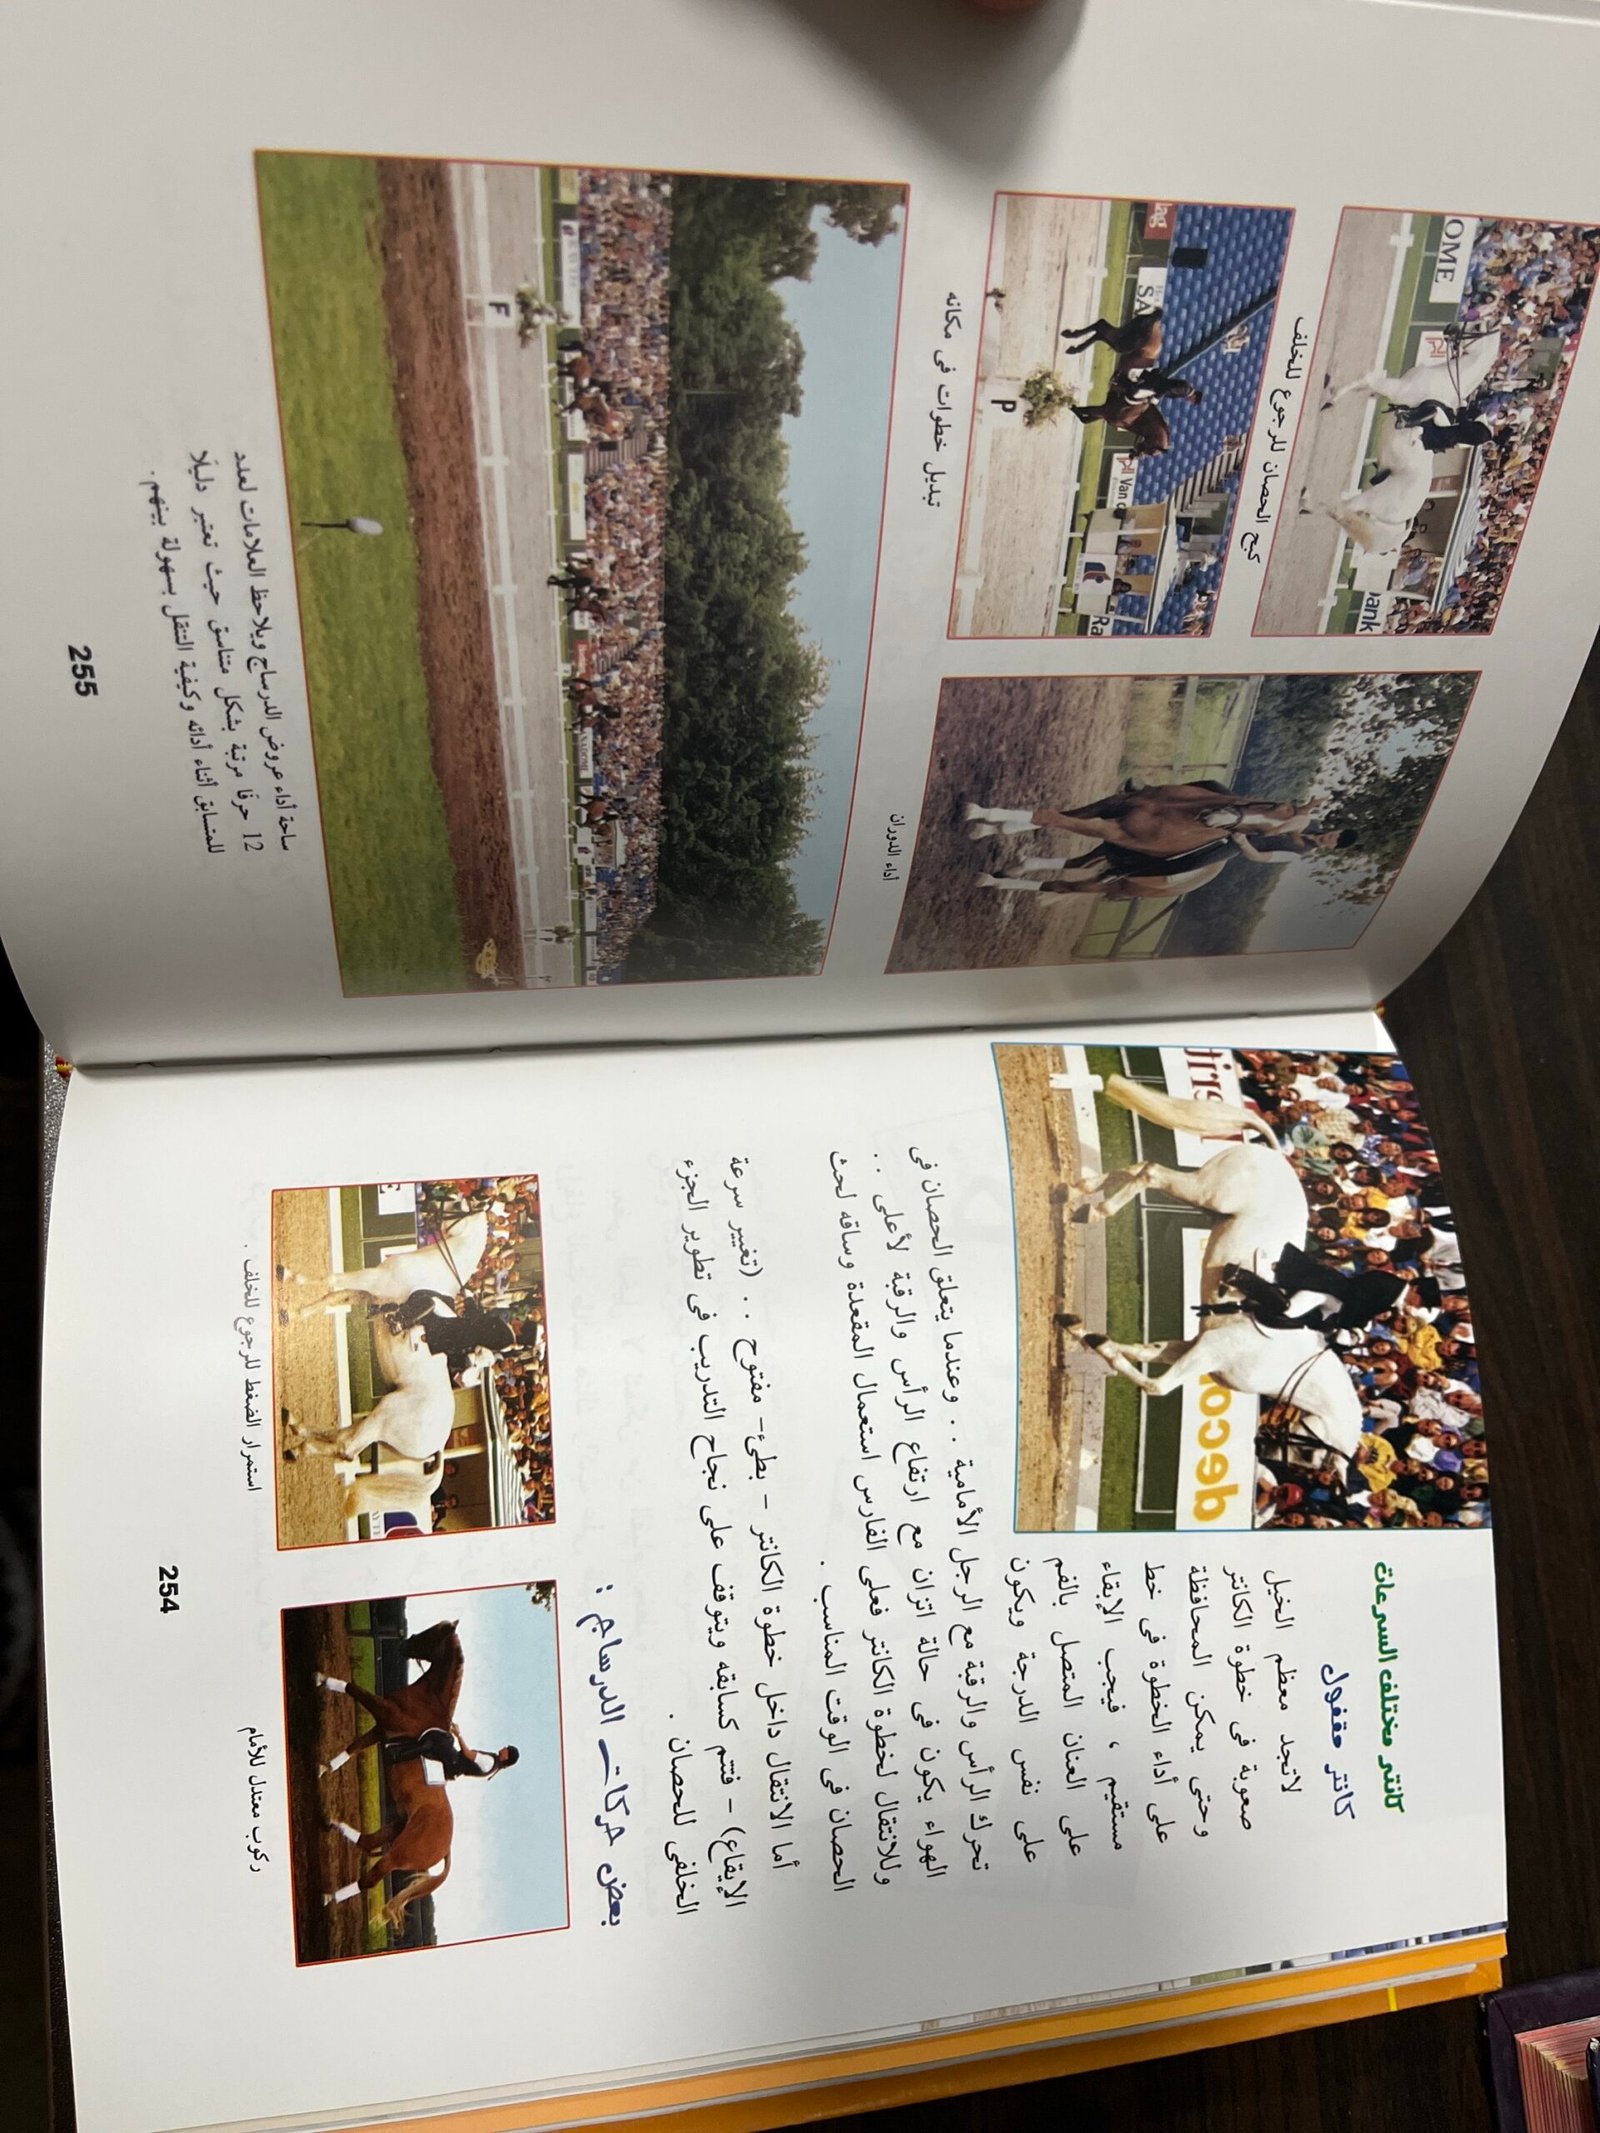 كانتر مختلف السرعات
كانتر مقفول
لاتجد معظم الخيل
صعوبة فى خطوة الكانتر
وحتى يمكن المحافظة
على أداء الخطوة فى خط
مستقيم ، فيجب الإبقاء
على العنان المتصل بالفم
على نفس الدرجة ويكون
تحرك الرأس والرقبة مع الرجل الأمامية . . وعندما يتعلق الحصان فى
الهواء يكون فى حالة اتزان مع ارتفاع الرأس والرقبة لأعلى . .
وللانتقال لخطوة الكانتر فعلى الفارس استعمال المقعدة وساقه لحث
الحصان فى الوقت المناسب .
أما الانتقال داخل خطوة الكانتر - بطئ- مفتوح . . (تغيير سرعة
الإيقاع) - فتتم كسابقه ويتوقف على نجاح التدريب فى تطوير الجزء
الخلفى للحصان .
بعض حركات الدرساج :
ركوب معتدل للأمام
استمرار الضغط للرجوع للخلف .
254
decor
OME
ank
كبح الحصان للرجوع للخلف
lag
SA
P
Van d
Ra
تبديل خطوات فى مكانه
أداء الدوران
F
ساحة أداء عروض الدرساج ويلاحظ العلامات لعدد
12 حرفًا مرتبة بشكل متناسق حيث تعتبر دليلًا
للمتسابق أثناء أدائه وكيفية التنقل بسهولة بينهم .
255